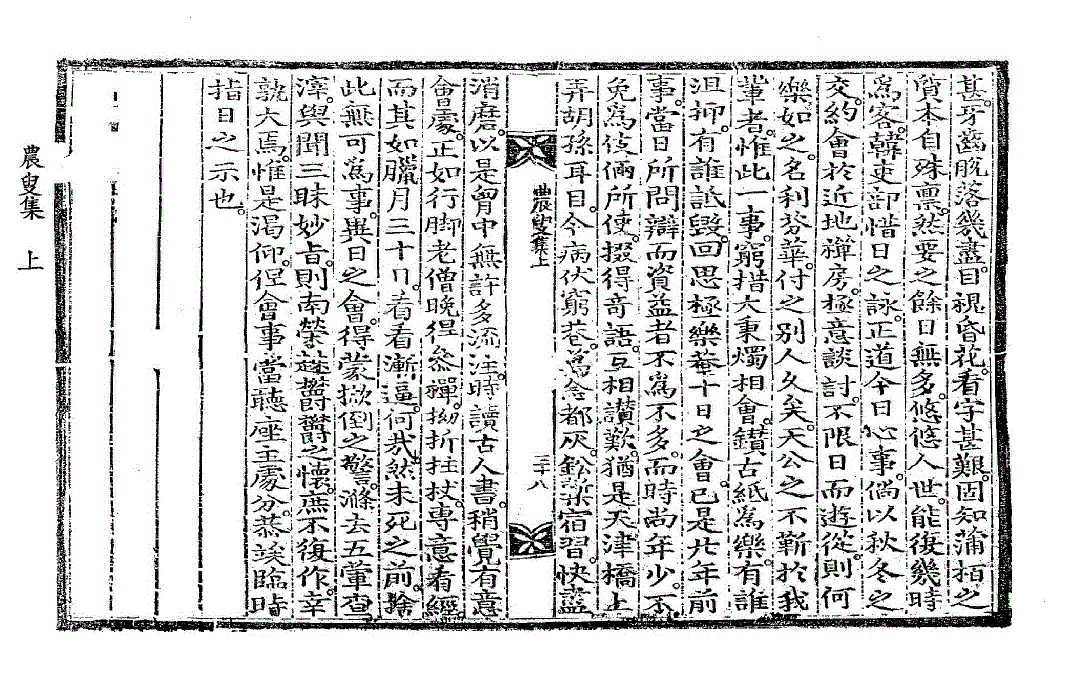 甚。牙齒脫落幾盡。目視昏花。看字甚艱。固知蒲栢之
質本自殊禀。然要之餘日無多。悠悠人世。能復幾時
爲客。韓吏部惜日之詠。正道今日心事。倘以秋冬之
交。約會於近地禪房。極意談討。不限日而遊從。則何
樂如之。名利芬華。付之別人久矣。天公之不靳於我
輩者。惟此一事。窮措大秉燭相會。鑚古紙爲樂。有誰
沮抑。有誰詆毀。回思極樂菴十日之會。已是卄年前
事。當日所問辯而資益者不爲不多。而時尚年少。不
免爲伎倆所使。掇得奇語。互相讃歎。猶是天津橋上
弄胡孫耳目。今病伏窮巷。萬念都灰。鈆槧宿習。快盡
農叟集上
三十八
消磨。以是胷中無許多流注。時讀古人書。稍覺有意
會處。正如行脚老僧晩得叅禪。拗折拄杖。專意看經。
而其如臘月三十日。看看漸逼。何哉。然未死之前。捨
此無可爲事。異日之會。得蒙掀倒之警。滌去五葷查
滓。與聞三昧妙旨。則南榮趎欝欝之懷。庶不復作。幸
孰大焉。惟是渴仰。但會事當聽座主處分。恭竢臨時
指日之示也。
農叟集 上